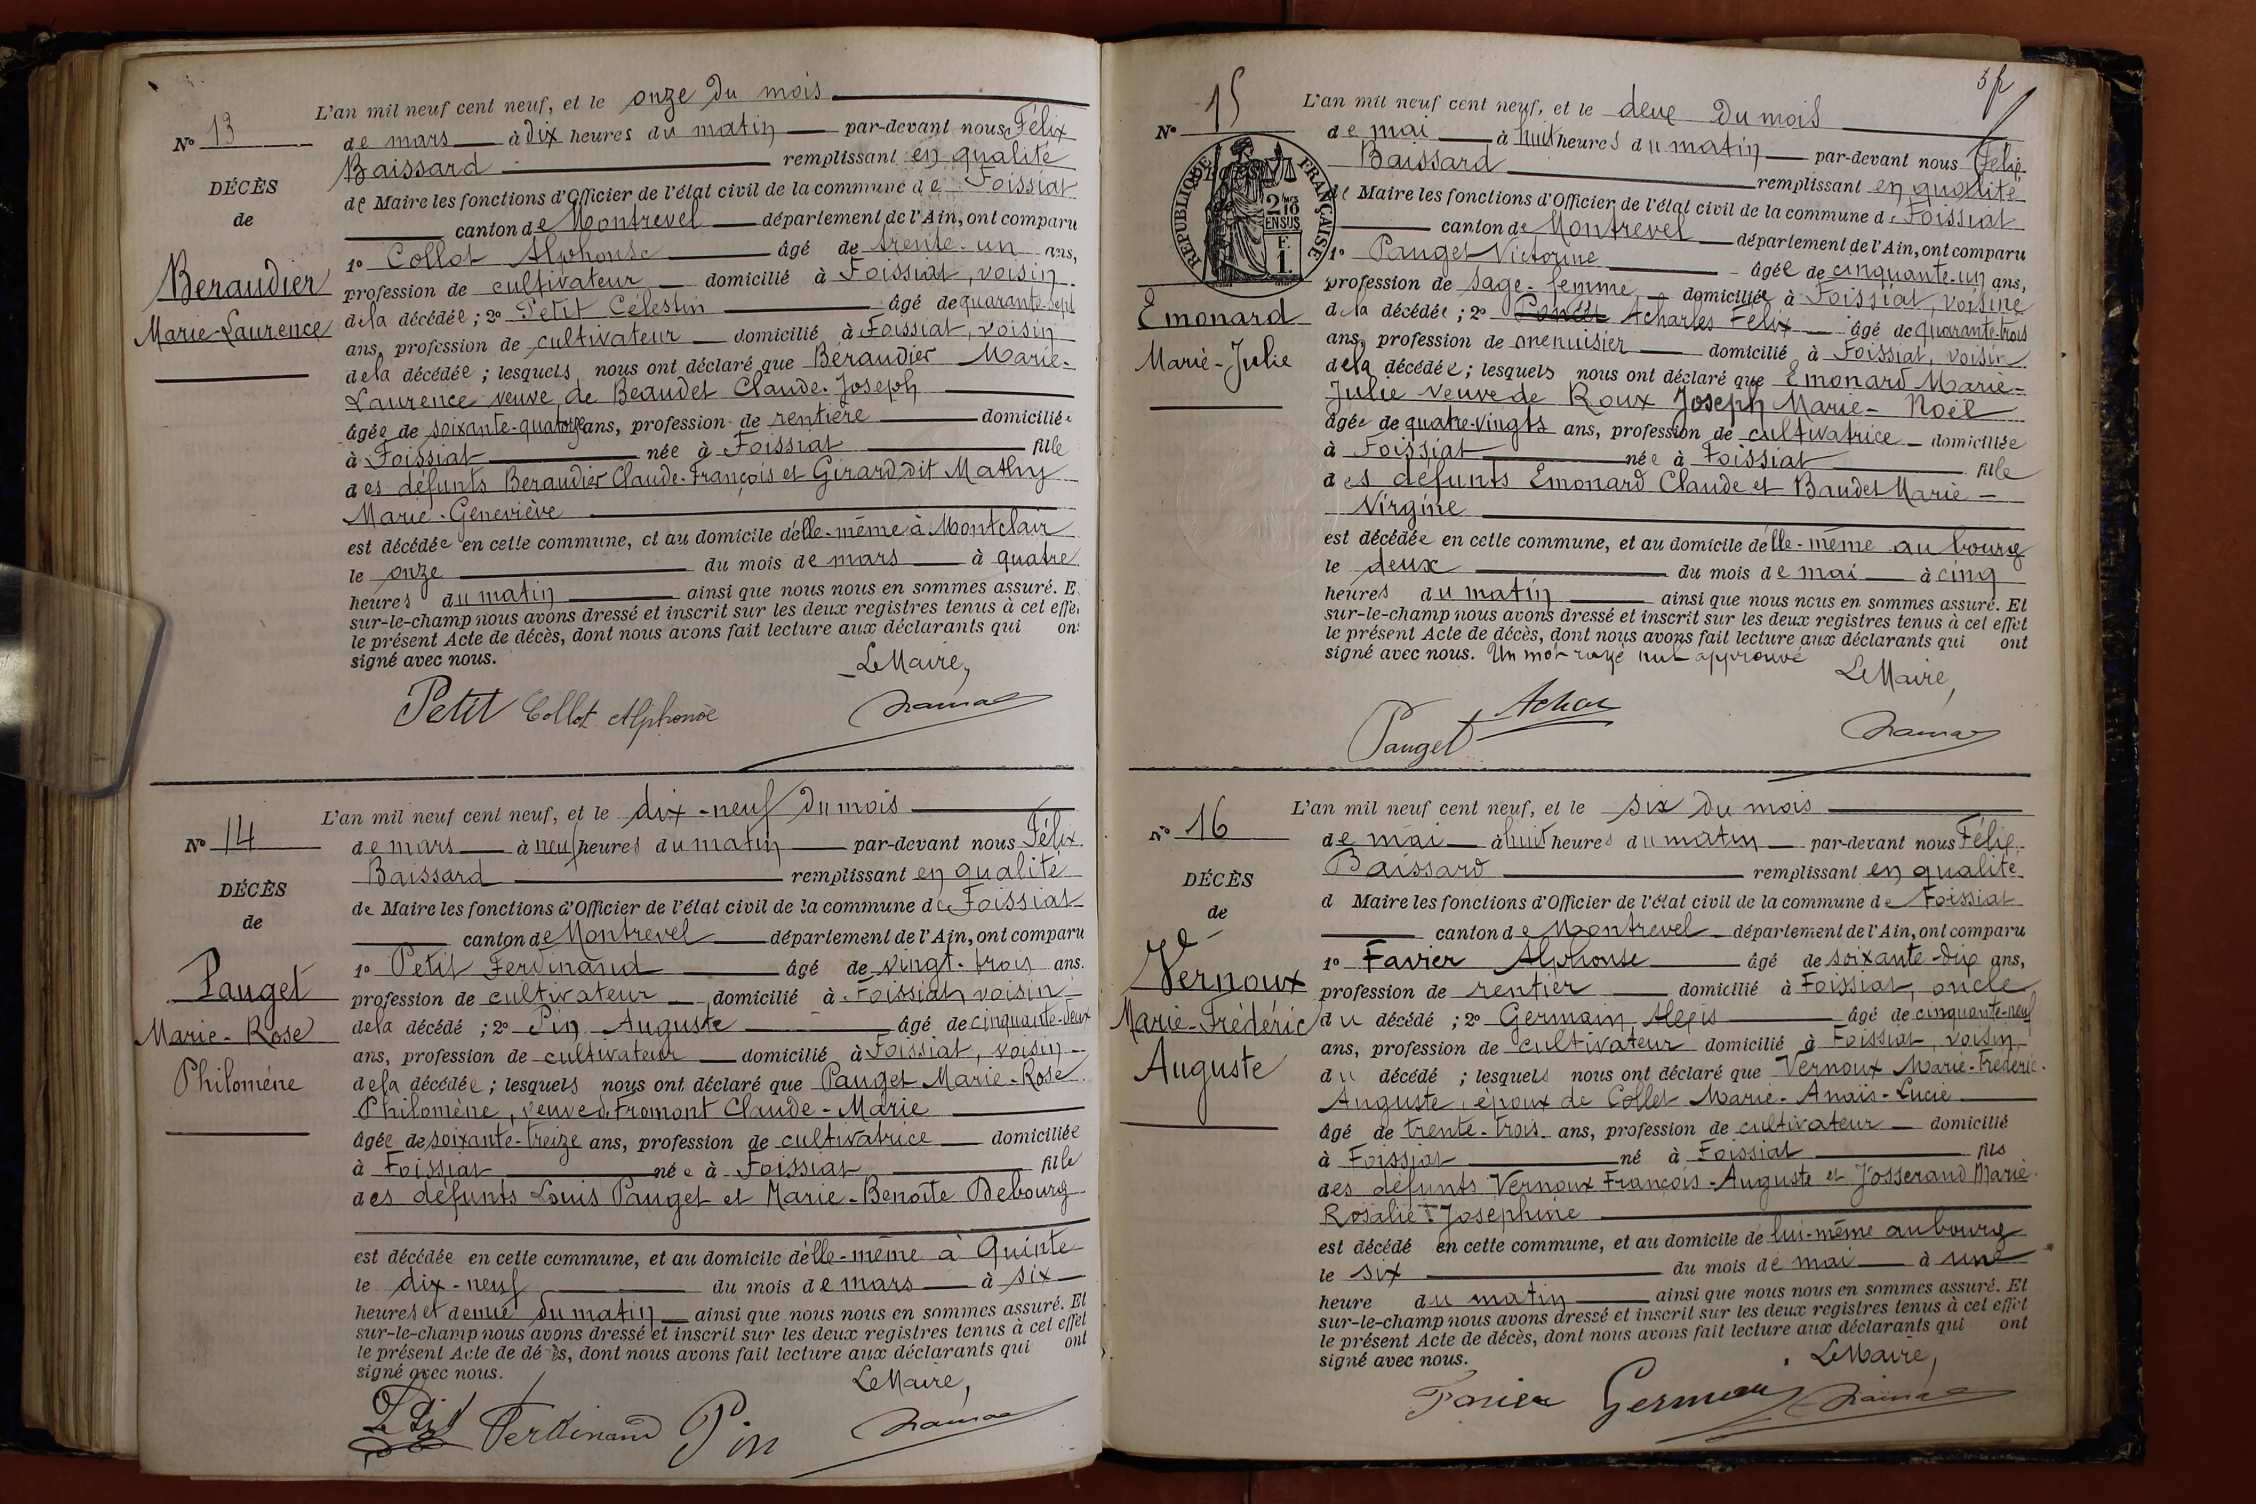 L'an mil neuf cent neuf, et le onze du mois
N° 13
de mars à dix heures du matin par-devant nous Félix
Baissard remplissant en qualité
DÉCÈS
de Maire les fonctions d'Officier de l'état civil de la commune de Foissiat
de
canton de Montrevel département de l'Ain, ont comparu
1° Collot Alphonse âgé de trente-un ans,
Beraudier
profession de cultivateur domicilié à Foissiat, voisin
de la décédée ; 2° Petit Célestin âgé de quarante-sept
Marie-Laurence
ans, profession de cultivateur domicilié à Foissiat, voisin
de la décédée ; lesquels nous ont déclaré que Beraudier Marie-
Laurence veuve de Beaudet Claude-Joseph
âgée de soixante-quatorze ans, profession de rentière domiciliée
à Foissiat née à Foissiat fille
des défunts Beraudier Claude-François et Girard dit Mathy
Marie-Geneviève
est décédée en cette commune, et au domicile d'elle-même à Montclair
le onze du mois de mars à quatre
heures du matin ainsi que nous nous en sommes assuré. E
sur-le-champ nous avons dressé et inscrit sur les deux registres tenus à cet effe
le présent Acte de décès, dont nous avons fait lecture aux déclarants qui on
signé avec nous.
Le Maire,
Petit Collot Alphonse
L'an mil neuf cent neuf, et le dix-neuf du mois
N° 14
de mars à neuf heures du matin par-devant nous Félix
Baissard remplissant en qualité
DÉCÈS
de Maire les fonctions d'Officier de l'état civil de la commune de Foissiat
de
canton de Montrevel département de l'Ain, ont comparu
1° Petit Ferdinand âgé de vingt-trois ans.
Pauget
profession de cultivateur domicilié à Foissiat, voisin
de la décédé ; 2° Pin Auguste âgé de cinquante-deux
Marie-Rose
ans, profession de cultivateur domicilié à Foissiat, voisin
Philomène
de la décédée ; lesquels nous ont déclaré que Pauget Marie-Rose
Philomène, veuve de Fromont Claude-Marie
âgée de soixante-treize ans, profession de cultivatrice domiciliée
à Foissiat née à Foissiat fille
des défunts Louis Pauget et Marie-Benoîte Debourg
est décédée en cette commune, et au domicile d'elle-même à Quinte
le dix-neuf du mois de mars à six
heures et demie du matin ainsi que nous nous en sommes assuré. Et
sur-le-champ nous avons dressé et inscrit sur les deux registres tenus à cet effet
le présent Acte de décès, dont nous avons fait lecture aux déclarants qui ont
signé avec nous.
Le Maire,
Petit Ferdinand Pin
L'an mil neuf cent neuf, et le deux du mois
N° 15
de mai à huit heures du matin par-devant nous Félix
Baissard remplissant en qualité
RÉPUBLIQUE FRANÇAISE
2/10 EN SUS
F. 1.
de Maire les fonctions d'Officier de l'état civil de la commune de Foissiat
canton de Montrevel département de l'Ain, ont comparu
1° Pauget Victorine âgée de cinquante-un ans,
profession de sage-femme domiciliée à Foissiat, voisine
Emonard
de la décédée ; 2° Acharles Félix âgé de quarante-trois
Marie-Julie
ans, profession de menuisier domicilié à Foissiat, voisin
de la décédée ; lesquels nous ont déclaré que Emonard Marie-
Julie veuve de Roux Joseph Marie-Noël
âgée de quatre-vingts ans, profession de cultivatrice domiciliée
à Foissiat née à Foissiat fille
des défunts Emonard Claude et Baudet Marie-
Virgine
est décédée en cette commune, et au domicile d'elle-même au bourg
le deux du mois de mai à cinq
heures du matin ainsi que nous nous en sommes assuré. Et
sur-le-champ nous avons dressé et inscrit sur les deux registres tenus à cet effet
le présent Acte de décès, dont nous avons fait lecture aux déclarants qui ont
signé avec nous. Un mot rayé nul approuvé
Le Maire,
Pauget Achar
L'an mil neuf cent neuf, et le six du mois
N° 16
de mai à huit heures du matin par-devant nous Félix
Baissard remplissant en qualité
DÉCÈS
d Maire les fonctions d'Officier de l'état civil de la commune de Foissiat
de
canton de Montrevel département de l'Ain, ont comparu
1° Favier Alphonse âgé de soixante-dix ans,
Vernoux
profession de rentier domicilié à Foissiat, oncle
Marie-Frédéric
du décédé ; 2° Germain Alexis âgé de cinquante-neuf
ans, profession de cultivateur domicilié à Foissiat, voisin
Auguste
du décédé ; lesquels nous ont déclaré que Vernoux Marie-Frédéric-
Auguste, époux de Collet Marie-Anaïs-Lucie
âgé de trente-trois ans, profession de cultivateur domicilié
à Foissiat né à Foissiat fils
des défunts Vernoux François-Auguste et Josserand Marie
Rosalie Josephine
est décédé en cette commune, et au domicile de lui-même au bourg
le six du mois de mai à une
heure du matin ainsi que nous nous en sommes assuré. Et
sur-le-champ nous avons dressé et inscrit sur les deux registres tenus à cet effet
le présent Acte de décès, dont nous avons fait lecture aux déclarants qui ont
signé avec nous.
Le Maire,
Favier Germain